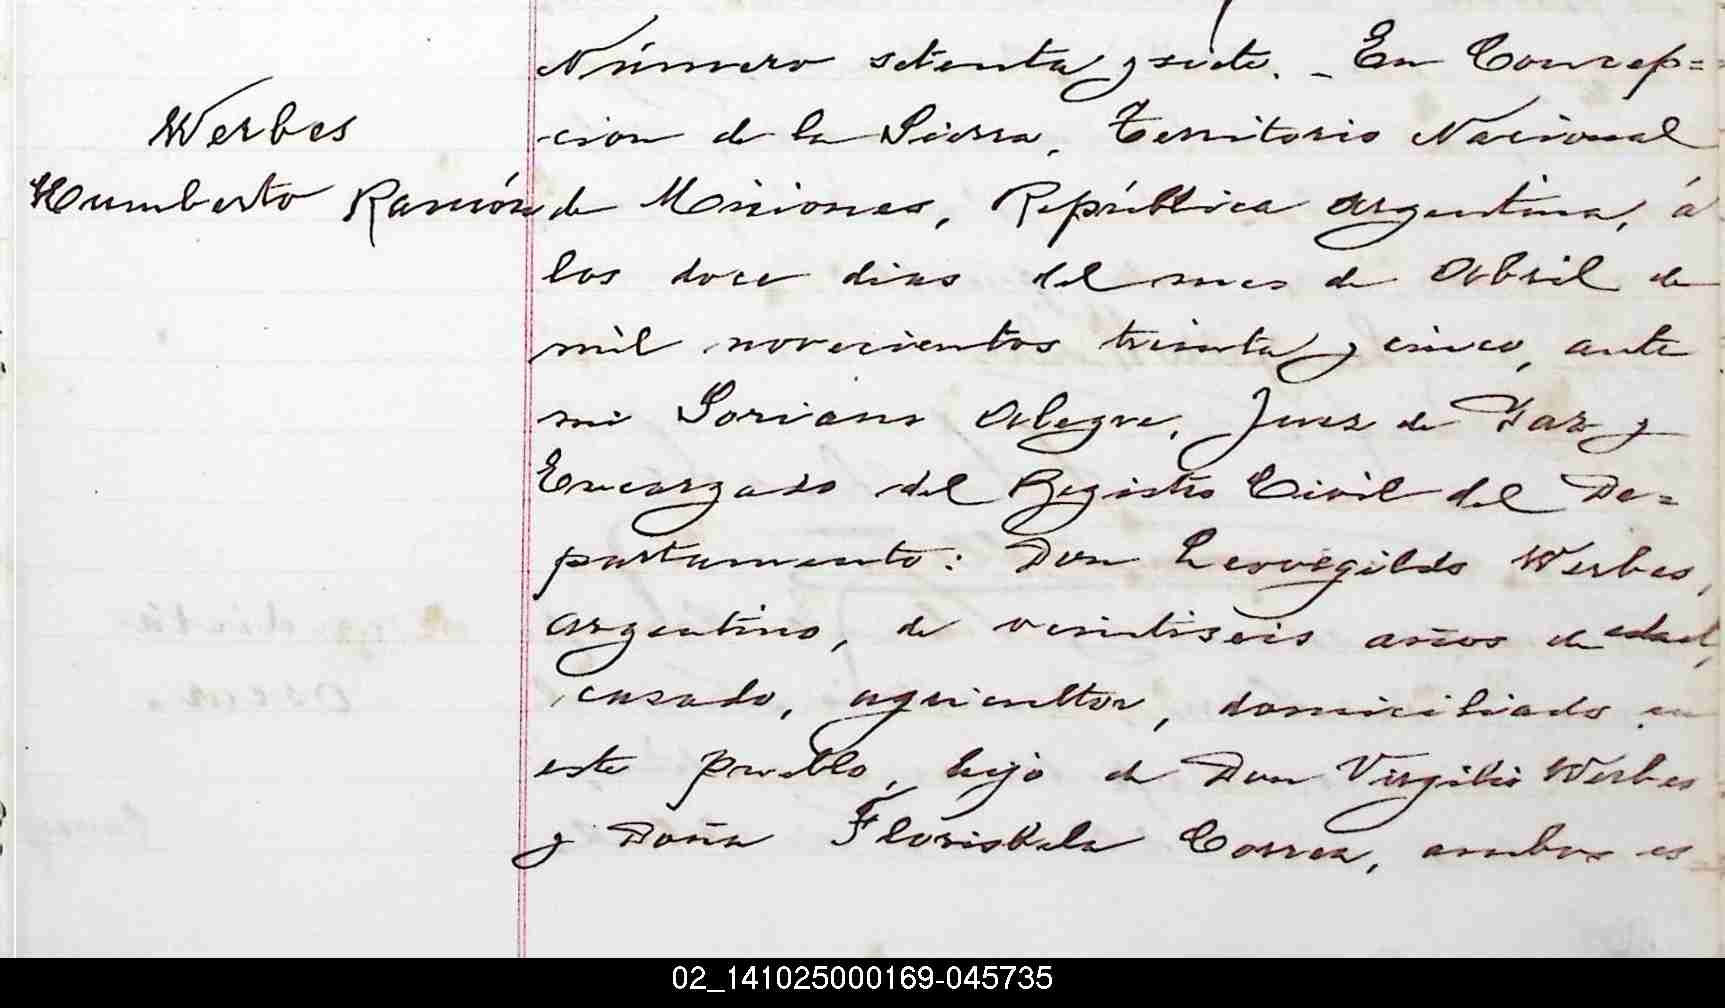 Werbes
Humberto Ramón
Número setenta y siete. - En Concep=
cion de la Sierra, Territorio Nacional
de Misiones, República Argentina, á
los doce dias del mes de Abril de
mil novecientos treinta y cinco, ante
mi Soriano Alegre, Juez de Paz y
Encargado del Registro Civil del De=
partamento: Don Leovegildo Werbes,
argentino, de veintiseis años de edad,
casado, agricultor, domiciliado en
este pueblo, hijo de Don Virgilio Werbes
y Doña Correa, ambos es
02_141025000169-045735